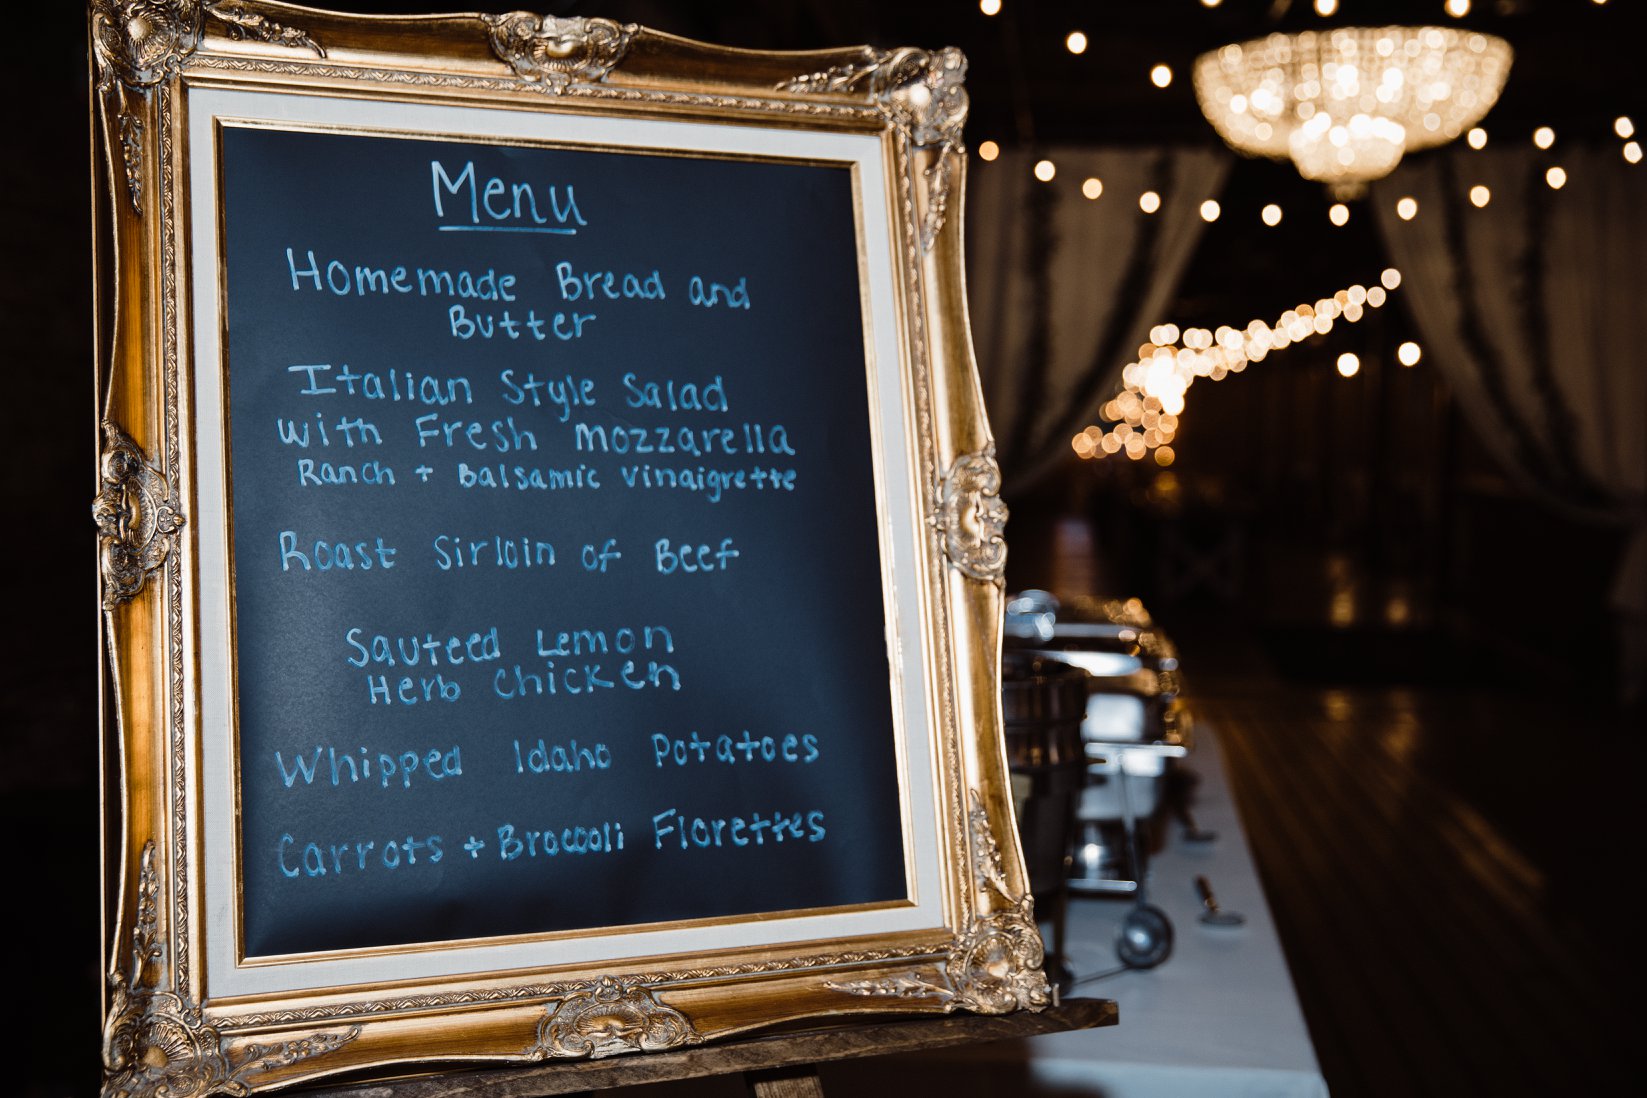 Menu
Homemade Bread and
Butter
Italian Style Salad
with Fresh mozzarella
Ranch + Balsamic Vinaigrette
Roast Sirloin of Beef
Sauteed Lemon
Herb Chicken
Whipped Idaho Potatoes
Carrots + Broccoli Florettes